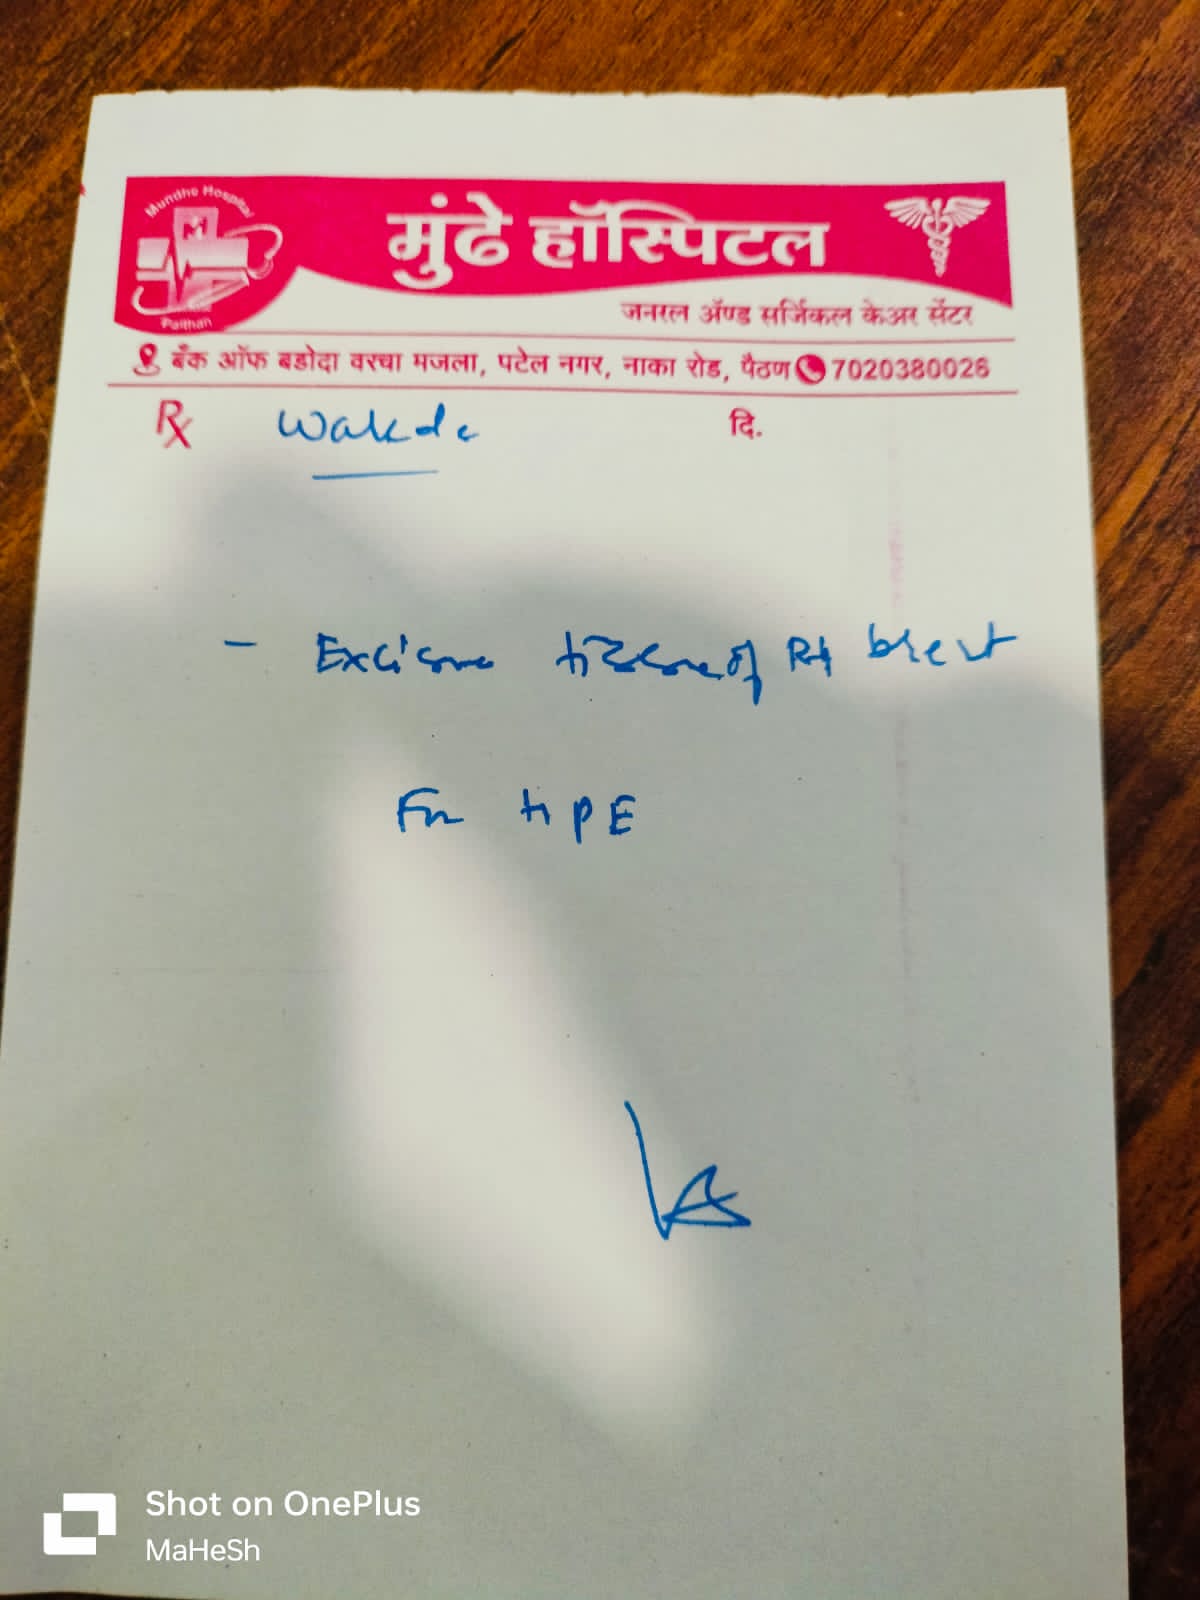 Mundhe Hospital
M
Paithan
मुंढे हॉस्पिटल
जनरल ॲण्ड सर्जिकल केअर सेंटर
बँक ऑफ बडोदा वरचा मजला, पटेल नगर, नाका रोड, पैठण 7020380026
Rx Wakde दि.
- of Rt breast
For HPE
Shot on OnePlus
MaHeSh